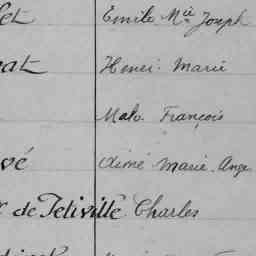 et Emile Mie Joseph
at Henri Marie
Malo François
vé Aimé Marie Ange
de Petiville Charles